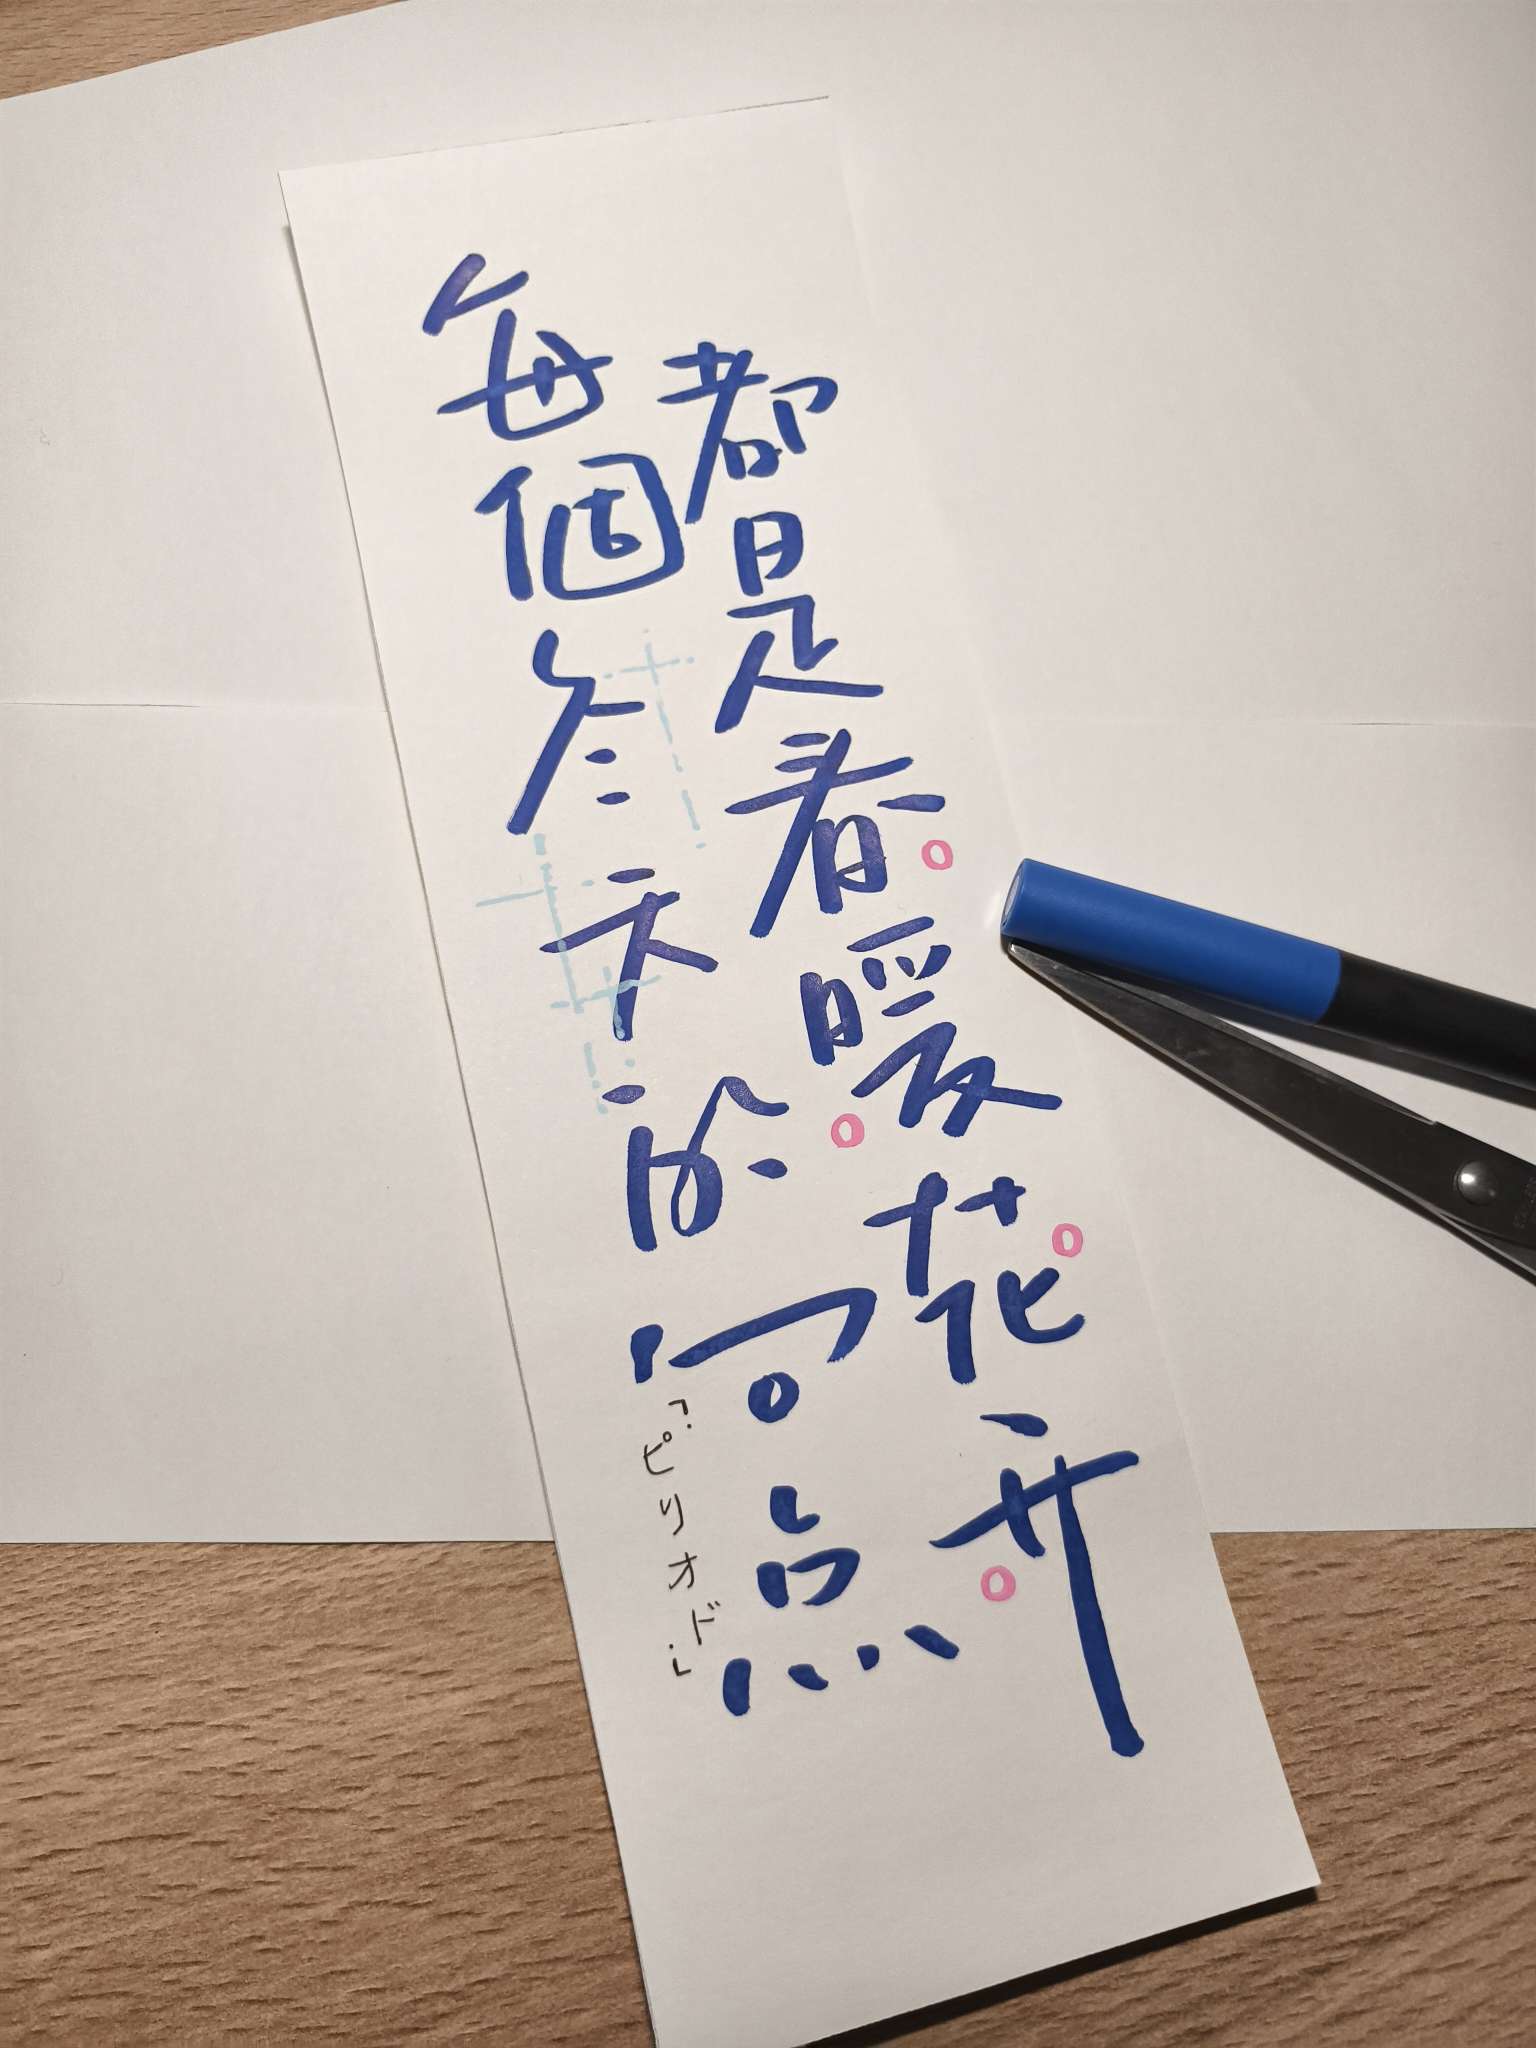 每個冬天的句点
都是春暖花开
「ピリオド」